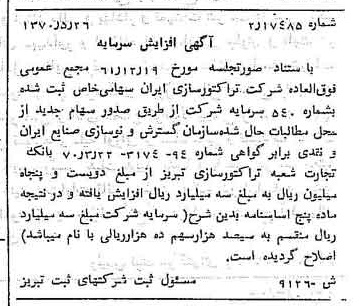 شماره ۲٫۱۷۴۸۵ ۱۳۷۰٫۵٫۲۶
آگهی افزایش سرمایه
با ستناد صورتجلسه مورخ ۶۱٫۱۲٫۱۹ مجمع عمومی
فوق‌العاده شرکت تراکتورسازی ایران سهامی‌خاص ثبت شده
بشماره ۵۴۰ سرمایه شرکت از طریق صدور سهام جدید از
محل مطالبات حال شده‌سازمان گسترش و نوسازی صنایع ایران
و نقدی برابر گواهی شماره ۹۴- ۳۱۷۴- ۷۰٫۳٫۲۲ بانک
تجارت شعبه تراکتورسازی تبریز از مبلغ دویست و پنجاه
میلیون ریال به مبلغ سه میلیارد ریال افزایش یافته و در نتیجه
ماده پنج اساسنامه بدین شرح( سرمایه شرکت مبلغ سه میلیارد
ریال منقسم به سیصد هزارسهم ده هزارریالی با نام میباشد)
اصلاح گردیده است.
ش -۹۱۲۶ مسئول ثبت شرکتهای ثبت تبریز